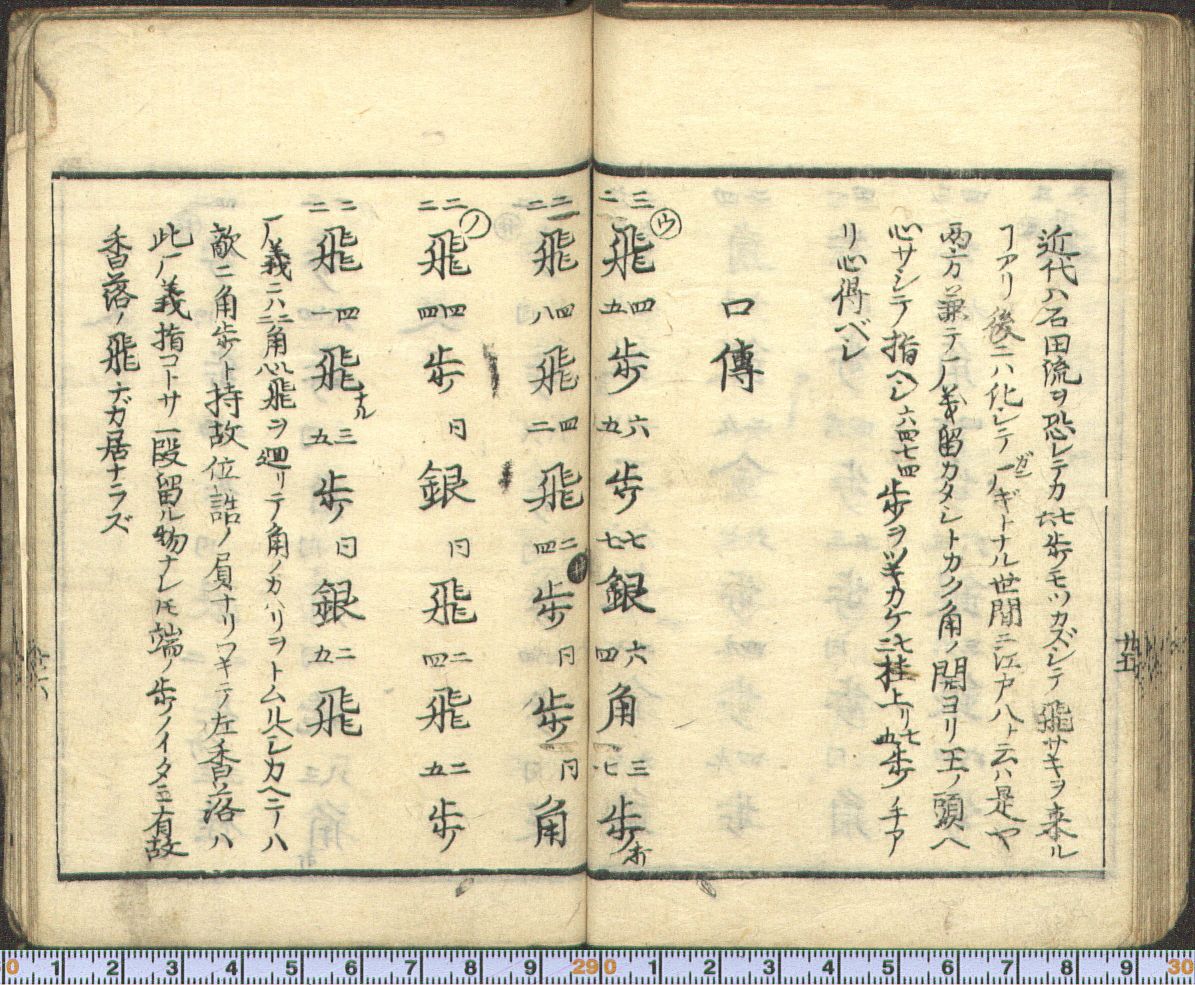 近代ハ石田流ヲ恐レテカ七六歩モツカズシテ飛サキヲ来ル
ヿアリ後ニハ化シテ一ギトナル世間ニ江戸八ト云ハ是ヤ
両方兼テ 義留カタシトカク角ノ開ヨリ王ノ頭ヘ
心サシテ指ヘシ六四七四歩ヲツキカケ七三桂上リ七五歩ノ手ア
リ心得ベシ
口傳
ウ
三二飛 四五歩 六五歩 七七銀 六四角 三七歩
二二飛 四八飛 四二飛 二四歩 同歩 同角
ノ
二二飛 四四歩 同銀 同飛 二四飛 二五歩
二二飛 四一飛ナル 三五歩 同銀 二五飛
義ニハ三二角心飛ヲ廻リテ角ノカハリヲトムルヘシカヘニハ
敵ニ角歩ト持故位詰ノ負ナリワキテ左香落ハ
此 義指コトサ一段留ル物ナレ𪜈端ノ歩ノイタミ有故
香落ノ飛ナガ居ナラズ
廿五